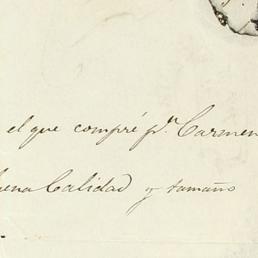 el que compré pr. Carmen
buena Calidad y tamaño